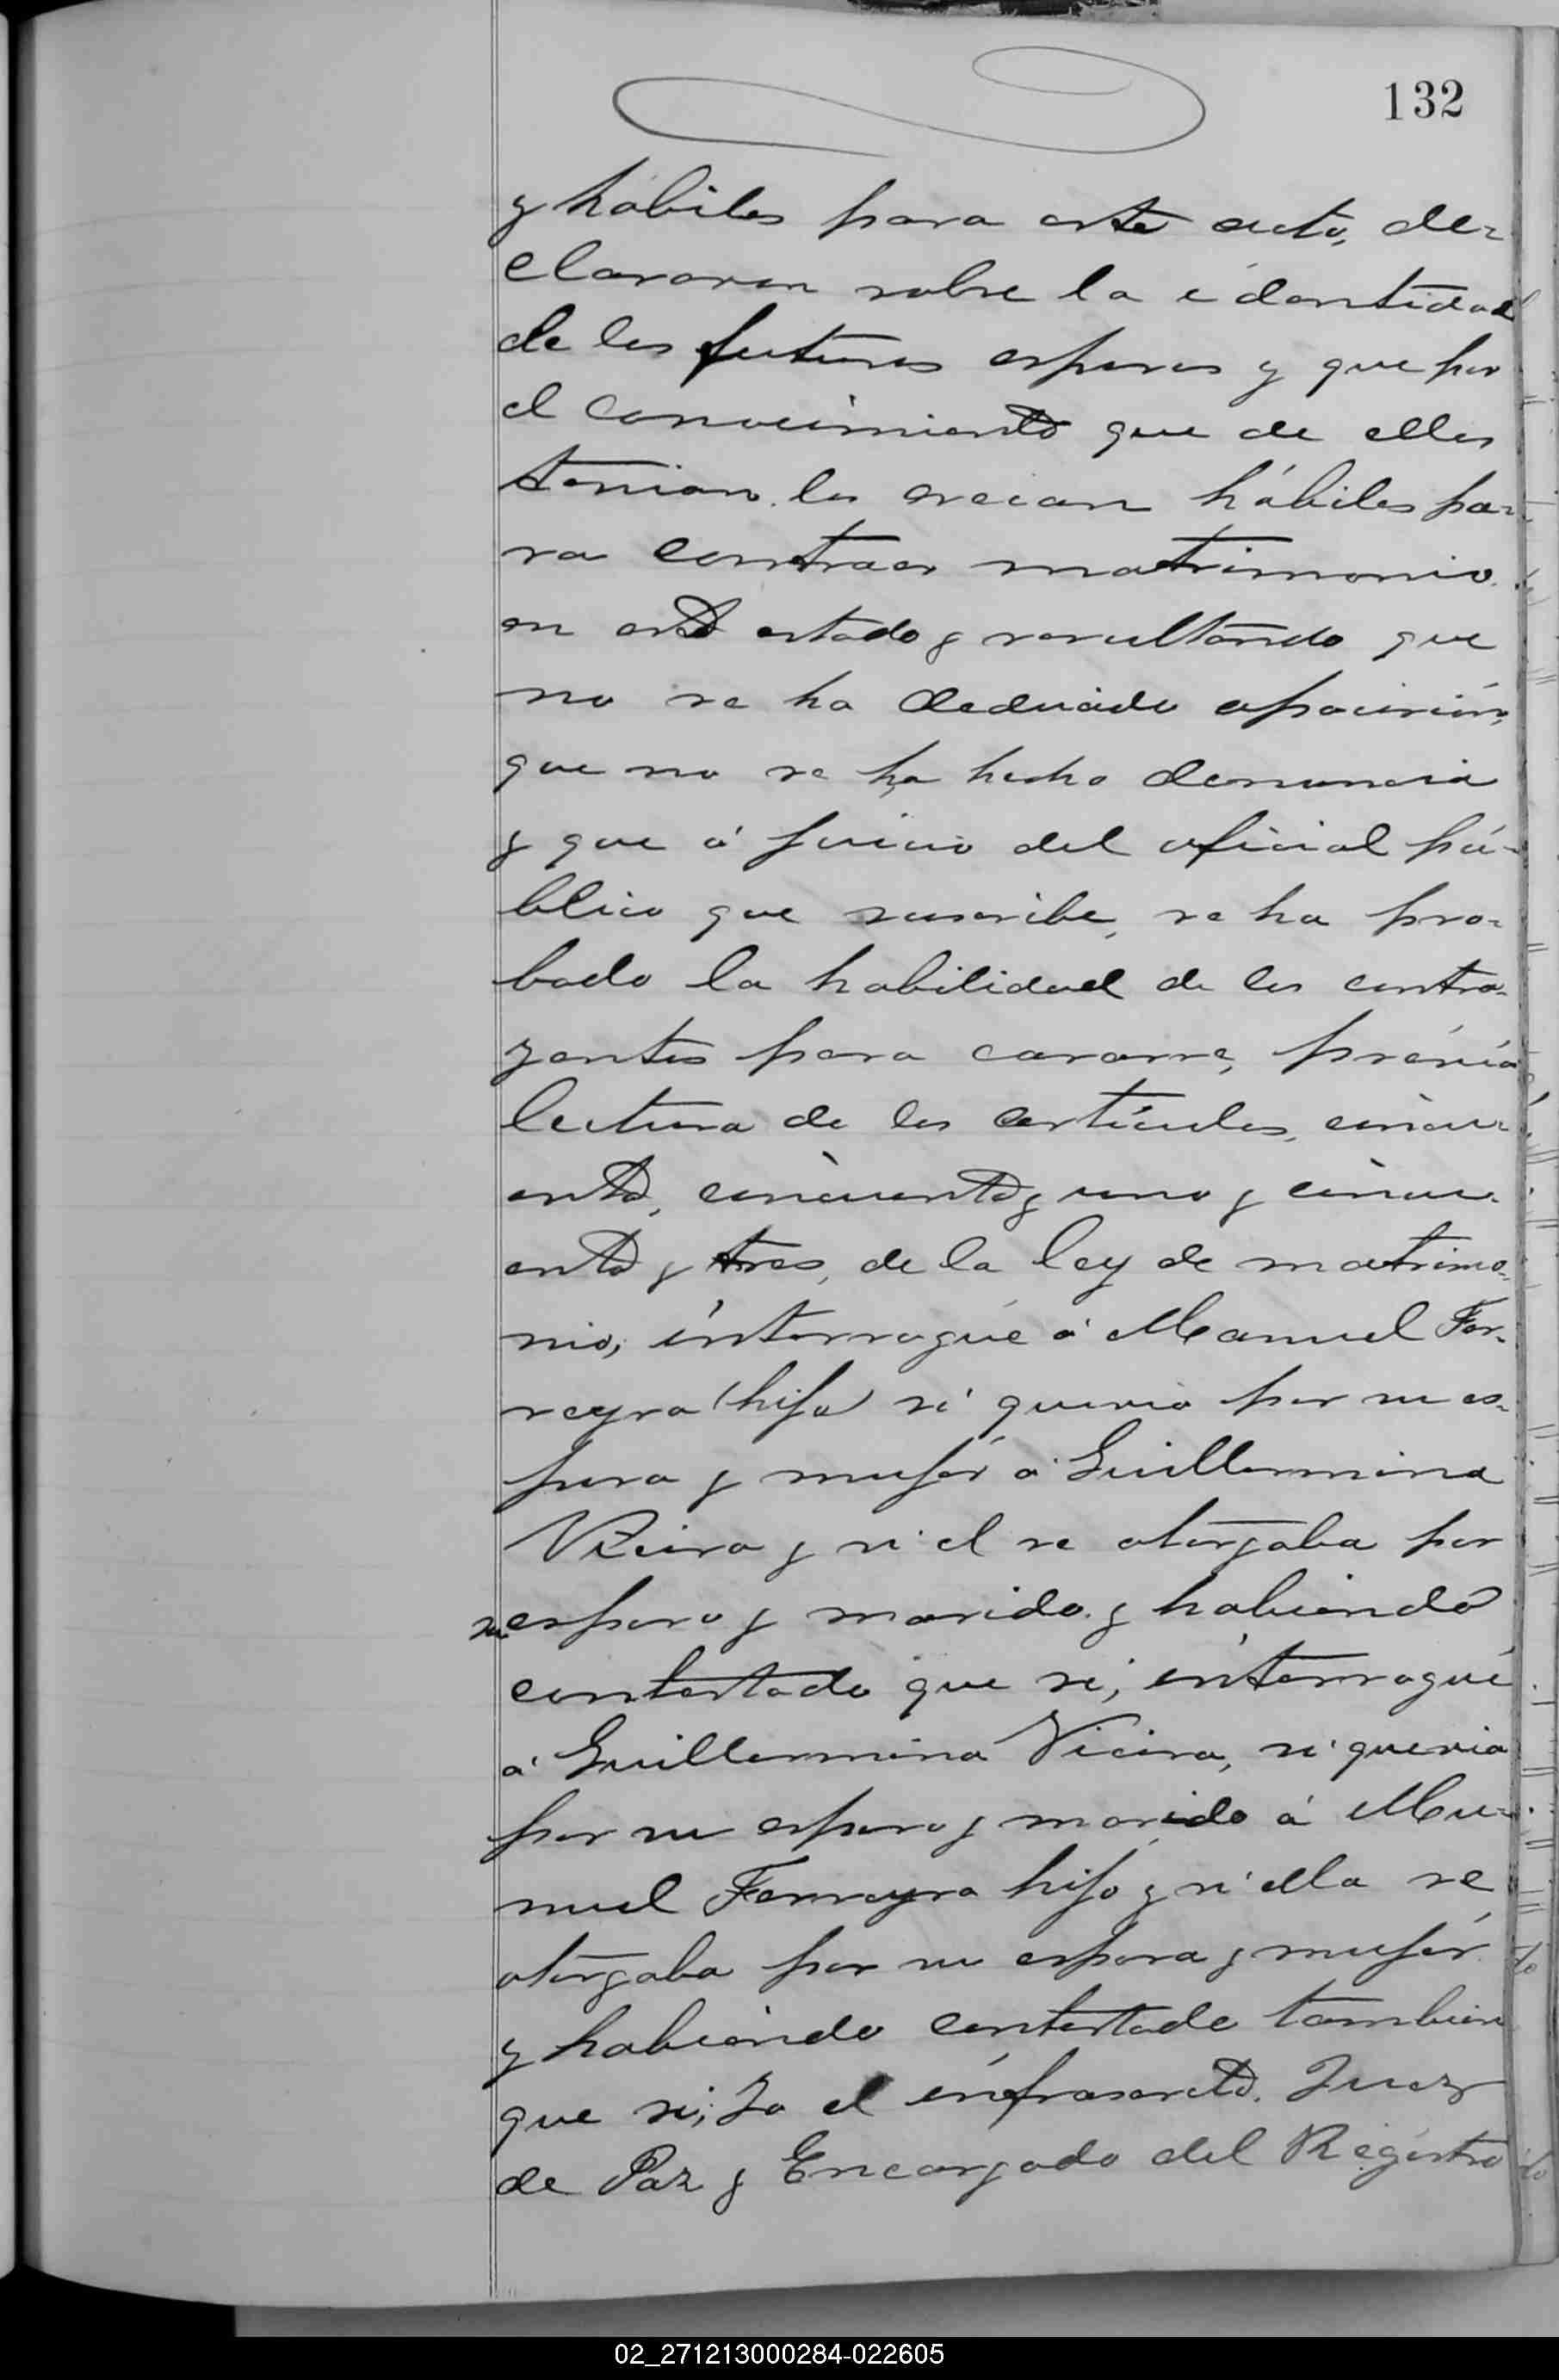 132
y hábiles para este acto, de=
clararon sobre la identidad
de los futuros esposos y que por
el conocimiento que de ellos
tenian los creian hábiles pa=
ra contraer matrimonio.
en este estado y resultando que
no se ha deducido oposición,
que no se ha hecho denuncia
y que á juicio del oficial pú-
blico que suscribe, se ha pro=
bado la habilidad de los contra-
yentes para casarse, prévia
lectura de los artículos, cincu=
enta, cincuenta y uno y cincu-
enta y tres, de la ley de matrimo-
nio; interrogué á Manuel Fer-
reyra (hijo) si queria por su es-
posa y mujér á Guillermina
Vieira y si el se otorgaba por
su esposo y marido. y habiendo
contestado que si; interrogué
á Guillermina Vieira, si queria
por su esposo y marido á Ma-
nuel Ferreyra hijo y si ella se
otorgaba por su esposa y mujér.
y habiendo contestado tambien
que si; Yo el infrascrito. Juez
de Paz y Encargado del Registro
02_271213000284-022605